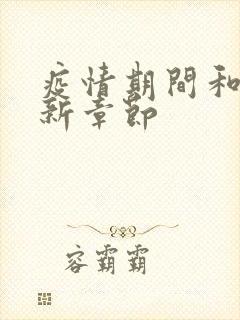 疫情期間和
新章節
容霸霸